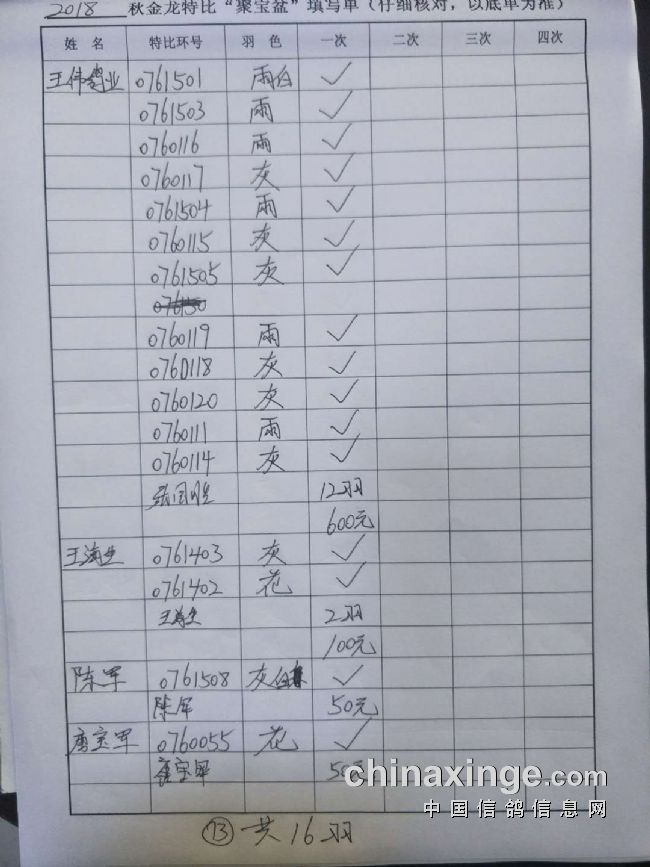 2018 秋金龙特比“聚宝盆”填写单（仔细核对，以底单为准）
姓 名 特比环号 羽 色 一次 二次 三次 四次
王伟 业 0761501 雨白 ✓
0761503 雨 ✓
0760116 雨 ✓
0760117 灰 ✓
0761504 雨 ✓
0760115 灰 ✓
0761505 灰 ✓
0760119 雨 ✓
0760118 灰 ✓
0760120 灰 ✓
0760111 雨 ✓
0760114 灰 ✓
张国胜 12羽
600元
王海生 0761403 灰 ✓
0761402 花 ✓
2羽
100元
陈军 0761508 灰白 ✓
陈军 50元
唐宝军 0760055 花 ✓
唐宝军 50元
chinaxinge.com
中国信鸽信息网
73 共16羽